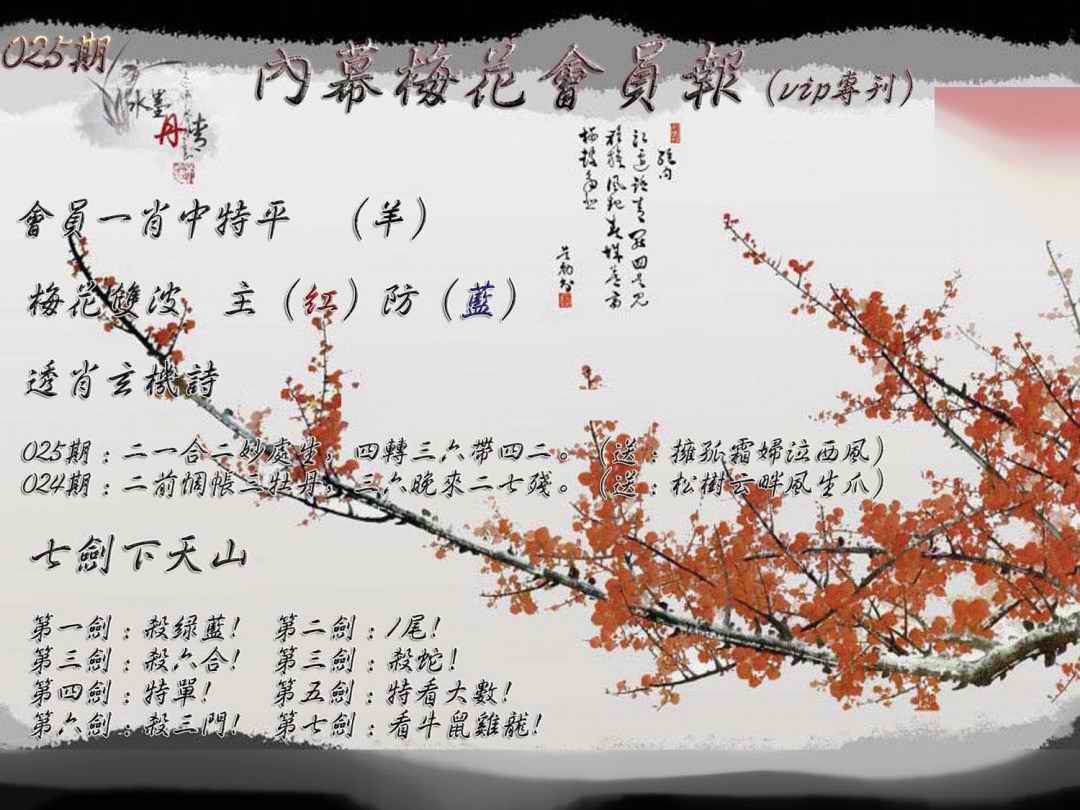 025期
內幕梅花會員報(vip專刊)
水墨
丹青
會員一肖中特平 (羊)
梅花雙波 主(红)防(藍)
透肖玄機詩
025期:二一合二妙處生,四轉三六帶四二。(送:擁孤霜婦泣西風)
024期:二前惆帳三牡丹,三六晚來二七殘。(送:松樹云畔風生爪)
七劍下天山
第一劍:殺绿藍! 第二劍:1尾!
第三劍:殺六合! 第三劍:殺蛇!
第四劍:特單! 第五劍:特看大數!
第六劍:殺三門! 第七劍:看牛鼠雞龍!